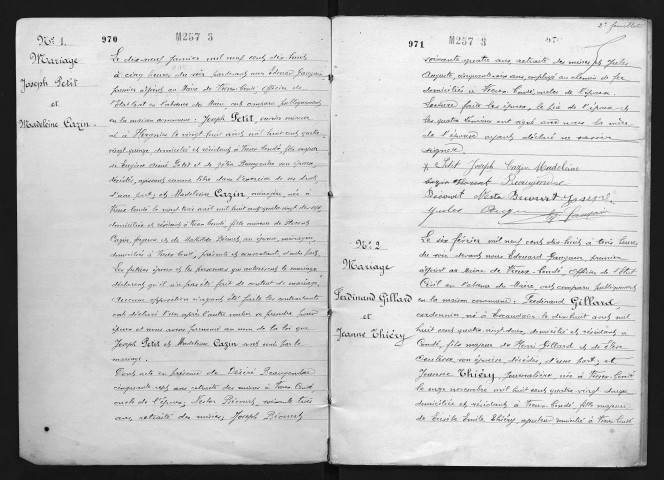 970
M257 3
N° 1.
Mariage
Joseph Petit
et
Madeleine Cazin.
Le dix neuf janvier mil neuf cent dix huit
à cinq heures du soir, par devant nous Edouard
premier adjoint au Maire de Vieux-Condé, Officier de
l'Etat Civil en l'absence du Maire, ont comparu publiquement
en la maison commune : Joseph Petit, ouvrier mineur
né à Hergnies le vingt huit août mil huit cent quatre
vingt quinze domicilié et résidant à Vieux Condé fils majeur
de René Petit et de Julia Beaugendre son épouse
d'une part ; et Madeleine Cazin, ménagère, née à
Vieux Condé le vingt trois avril mil huit cent quatre vingt dix sept
domiciliée et résidant à Vieux Condé, fille majeure de
Cazin, et de Mathilde Bécourt son épouse, ménagère
domiciliés à Vieux Condé, présents et consentant d'autre part.
Les futurs époux et les personnes qui autorisent le mariage
déclarent qu'il n'a pas été fait de contrat de mariage.
Aucune opposition n'ayant été faite les contractants
ont déclaré l'un après l'autre vouloir se prendre pour
époux et nous avons prononcé au nom de la loi que
Joseph Petit et Madeleine Cazin sont unis par le
mariage.
Dont acte en présence de Désiré Beaugendre
cinquante sept ans retraité des mines à Vieux Condé
oncle de l'époux, Nestor Bécourt, soixante trois
ans, retraité des mines, Joseph Bécourt
2e feuillet
971
M257 3
soixante quatre ans retraité des mines, Jules
Auguste, cinquante six ans, employé au chemin de fer
domiciliés à Vieux Condé, oncles de l'épouse.
Lecture faite les époux, le père de l'épouse et
les quatre témoins ont signé avec nous la mère
de l'épouse ayant déclaré ne savoir
signer.
Petit Joseph Cazin Madeleine
Cazin Beaugendre
Bécourt Nestor Bécourt Joseph
Jules
N° 2
Mariage
Ferdinand Gillard
et
Jeanne Thiéry
Le dix février mil neuf cent dix huit à trois heures
du soir devant nous Edouard premier
adjoint au Maire de Vieux-Condé, Officier de l'Etat
Civil en l'absence du Maire, ont comparu publiquement
en la maison commune : Ferdinand Gillard,
cordonnier, né à le dix huit août mil
huit cent quatre vingt deux, domicilié et résidant à
Condé, fils majeur de Henri Gillard et de
son épouse, décédés, d'une part ; et
Jeanne Thiéry, journalière née à Vieux-Condé
le onze novembre mil huit cent quatre vingt
domiciliée et résidant à Vieux Condé, fille majeure
de Emile Thiéry, domicilié à Vieux Condé